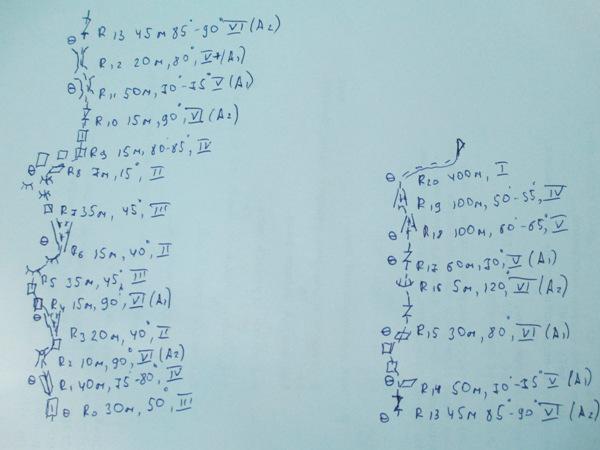 R13 45м 85°-90° VI (A2)
R12 20м, 80°, V+(A1)
R11 50м, 70°-75° V (A1)
R10 15м, 90°, VI (A2)
R9 15м, 80-85°, IV
R8 7м, 15°, II
R7 35м, 45°, III
R6 15м, 40°, II
R5 35м, 45°, III
R4 15м, 90°, VI (A1)
R3 20м, 40°, II
R2 10м, 90°, VI (A2)
R1 40м, 75-80°, IV
R0 30м, 50°, III
R20 400м, I
R19 100м, 50°-55°, IV
R18 100м, 60°-65°, V
R17 60м, 70°, V (A1)
R16 5м, 120°, VI (A2)
R15 30м, 80°, VI (A1)
R14 50м, 70°-75° V (A1)
R13 45м 85°-90° VI (A2)